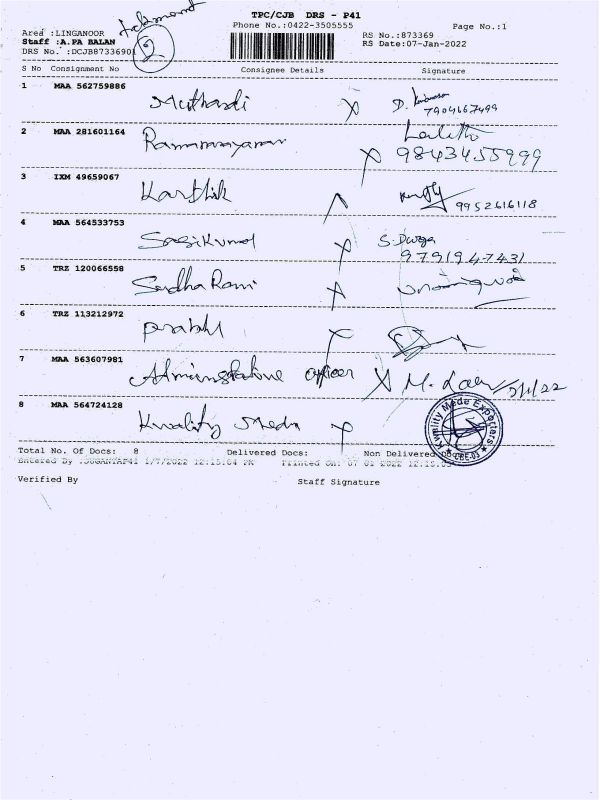 TPC/CJB DRS - P41
Phone No.:0422-3505555
Page No.:1
Area :LINGANOOR
RS No.:873369
Staff :A.PA BALAN
RS Date:07-Jan-2022
DRS No. :DCJB87336901
2
S No Consignment No Consignee Details Signature
1 MAA 562759886 Muthandi X D.
7904667499
2 MAA 281601164 X Lalitha
9843455999
3 IXM 49659067 Karthik 9952616118
4 MAA 564533753 Sasikumar X S. Durga
9791947431
5 TRZ 120066558 Sudha Rani X
6 TRZ 113212972 Prabhu X
7 MAA 563607981 Administrative officer X M.
8 MAA 564724128 Kwality Made X
Kwality Made Exporters
CBE-03
Total No. Of Docs: 8 Delivered Docs: Non Delivered Docs:
Entered By :SUGANYAP41 1/7/2022 12:15:04 PM Printed On: 07 01 2022 12:15:05
Verified By Staff Signature